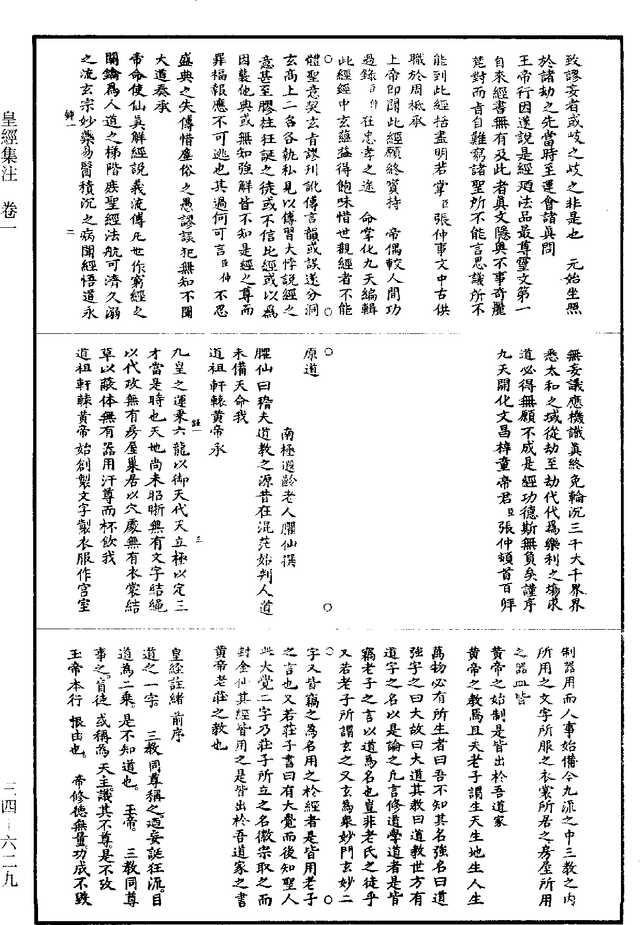 致謬妄者或歧之歧之非是也　元始坐照
於諸劫之先當時至運會諸真問
玉帝行因遂說是經乃法品最尊聖文第一
自來經書無有及此者真文隱奧不事奇麗
苑對而音自難窮諸聖所不能言思議所不
能到此經括盡明若掌臣張仲事文中古供
職於周祗承
上帝即聞此經願終寶持　帝偶較人間功
過錄臣仲在忠孝之迹　命掌化九天編輯
此經經中玄蘊益得飽味惜世觀經者不能
體聖意契玄旨謬刊訛傳言韻或誤遂分洞
玄高上二名各執私見以傳習大悖說經之
意甚至膠柱狂誕之徒或不信此經或以為
因襲他典或無知強解皆不知是經之尊而
罪福報應不可逃也其過何可言臣仲不忍
盛典之失傳惜塵俗之愚謬誤犯無知不聞
大道奏承
帝命使仙真解經說義流傳凡世作窮經之
關鑰為人道之梯階庶聖經法航可濟久溺
之流玄宗妙藥易醫積沉之病聞經悟道永
經一　二
無妄議應機識真終免輪沉三千大千界界
悉太和之域從劫至劫代代為樂利之場求
道必得無願不成是經功德斯無負矣謹序
九天開化文昌梓童帝君臣張仲頓首百拜
南極遐齡老人臞仙撰
原道
臞仙曰稽夫道教之源昔在混茫始判人道
未備天命我
道祖軒轅黃帝承
九皇之運乘六龍以御天代天立極以定三
才當是時也天地尚未昭晰無有文字結繩
以代政無有房屋巢居以穴處無有衣裳結
草以蔽体無有器用汗尊而杯飲我
道祖軒轅黃帝始創製文字製衣服作宮室
經一　三
制器用而人事始備今九流之中三教之内
所用之文字所服之衣裳所居之房屋所用
之器皿皆
黃帝之始制是皆出於吾道家
黃帝之教焉且夫老子謂生天生地生人生
萬物必有所生者曰吾不知其名強名曰道
強字之曰大故曰大道其教曰道教世方有
道字之名以是論之凡言修道學道者是皆
竊老子之言以道為名也豈非老氏之徒乎
又若老子所謂玄之又玄為衆妙門玄妙二
字又皆竊之為名用之於經者是皆用老子
之言也又若莊子書曰有大覺而後知聖人
此大覺二字乃莊子所立之名徽宗取之而
封金仙其經皆用之是皆出於吾道家之書
黃帝老莊之教也
皇經註緒前序
道之一字。三教同尊稱之。迺妄誕狂流。目
道為二乘。是不知道也。玉帝。三教同尊
事之。盲徒或稱為天主。議其不尊。是不攷
玉帝本行根由也。帝修德無量。功成不毀
皇經集注　卷一
三四—六二九